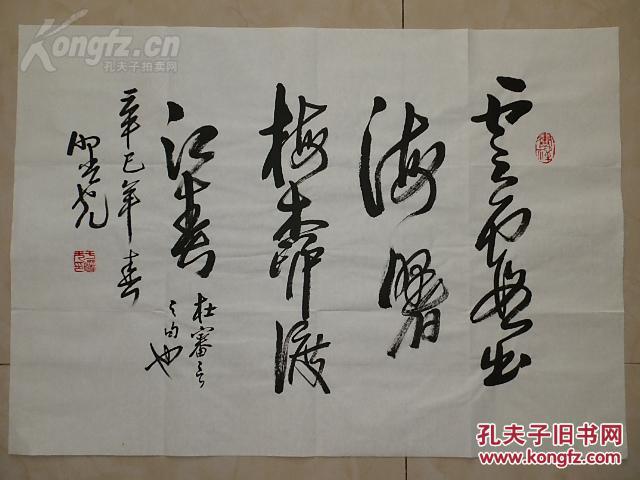 雲霞出
海曙
梅柳渡
江春
杜審言
之句也
辛巳年春
Kongfz.cn
孔夫子拍卖网
孔夫子旧书网
www.kongfz.com